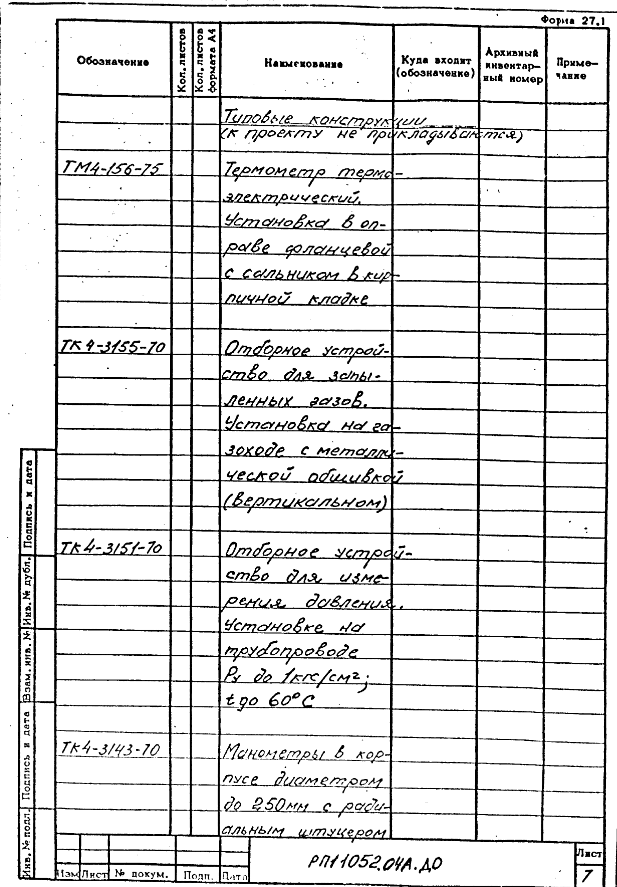 Форма 27.1
Обозначение
Кол. листов
Кол. листов формата А4
Наименование
Куда входит
(обозначение)
Архивный
инвентар-
ный номер
Приме-
чание
Типовые конструкции
(к проекту не прикладываются)
ТМ4-156-75
Термометр термо-
электрический.
Установка в оп-
раве фланцевой
с сальником в кир-
пичной кладке
ТК4-3155-70
Отборное устрой-
ство для запы-
ленных газов.
Установка на га-
зоходе с металли-
ческой обшивкой
(вертикальном)
ТК4-3151-70
Отборное устрой-
ство для изме-
рения давления.
Установке на
трубопроводе
Ру до 1кгс/см²;
t до 60°С
ТК4-3143-70
Манометры в кор-
пусе диаметром
до 250мм с ради-
альным штуцером
Инв. № подл.
Подпись и дата
Взам. инв. №
Инв. № дубл.
Подпись и дата
Изм
Лист
№ докум.
Подп.
Дата
РП11052.04А.ДО
Лист
7